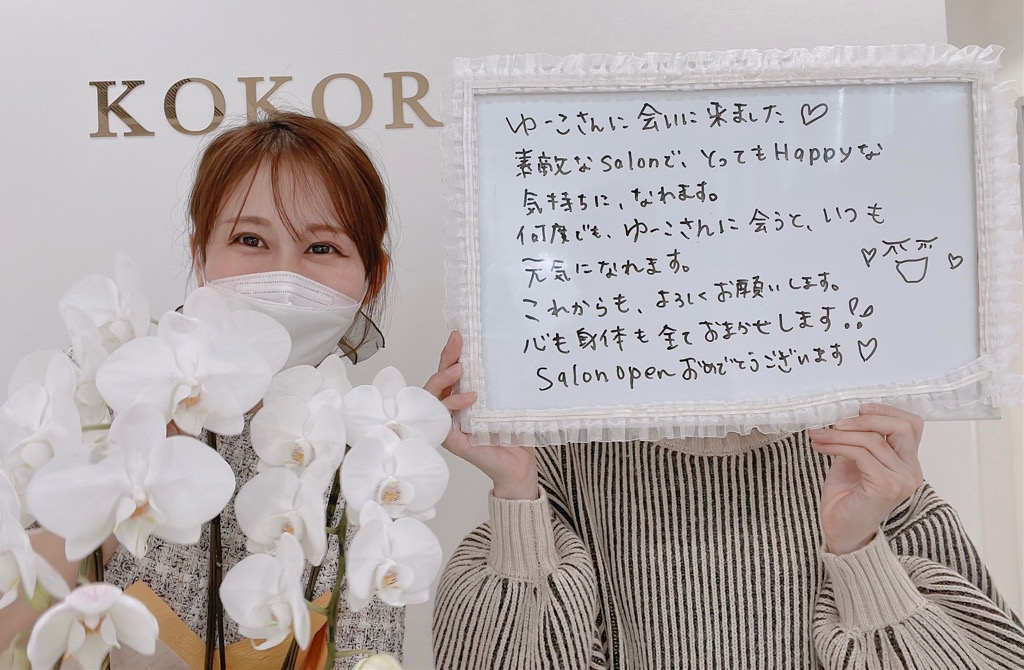 KOKOR
ゆーこさんに会いに来ました♡
素敵なsalonで、とってもHappyな
気持ちに、なれます。
何度でも、ゆーこさんに会うと、いつも
元気になれます。
これからも、よろしくお願いします。
心も身体も全ておまかせします!!
Salon openおめでとうございます♡